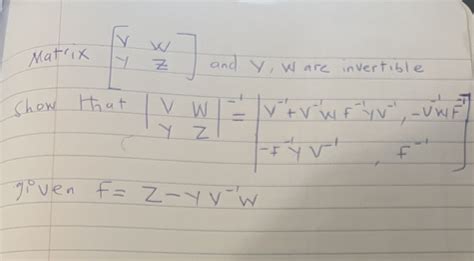 Matrix [V W
Y Z] and V, W are invertible
Show that |V W
Y Z|⁻¹ = |V⁻¹+V⁻¹WF⁻¹YV⁻¹, -V⁻¹WF⁻¹
-F⁻¹YV⁻¹ , F⁻¹]
given F= Z-YV⁻¹W